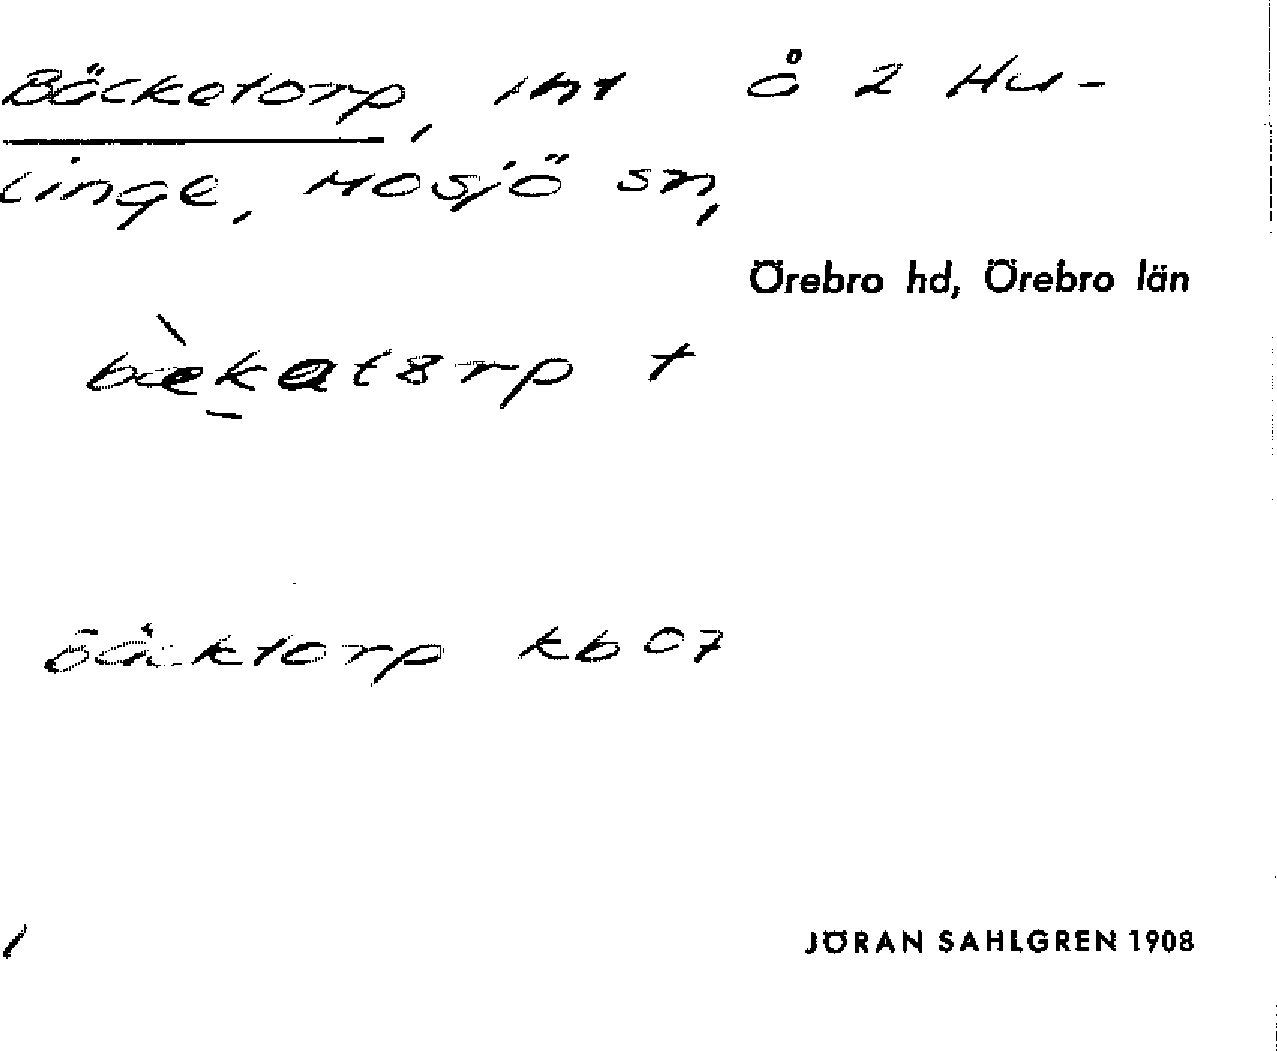 Bäcketorp, lht å 2 Hu-
linge, Mosjö sn,
Örebro hd, Örebro län
bæ̀k̠atȣrp +
Bäcktorp kb 07
JÖRAN SAHLGREN 1908